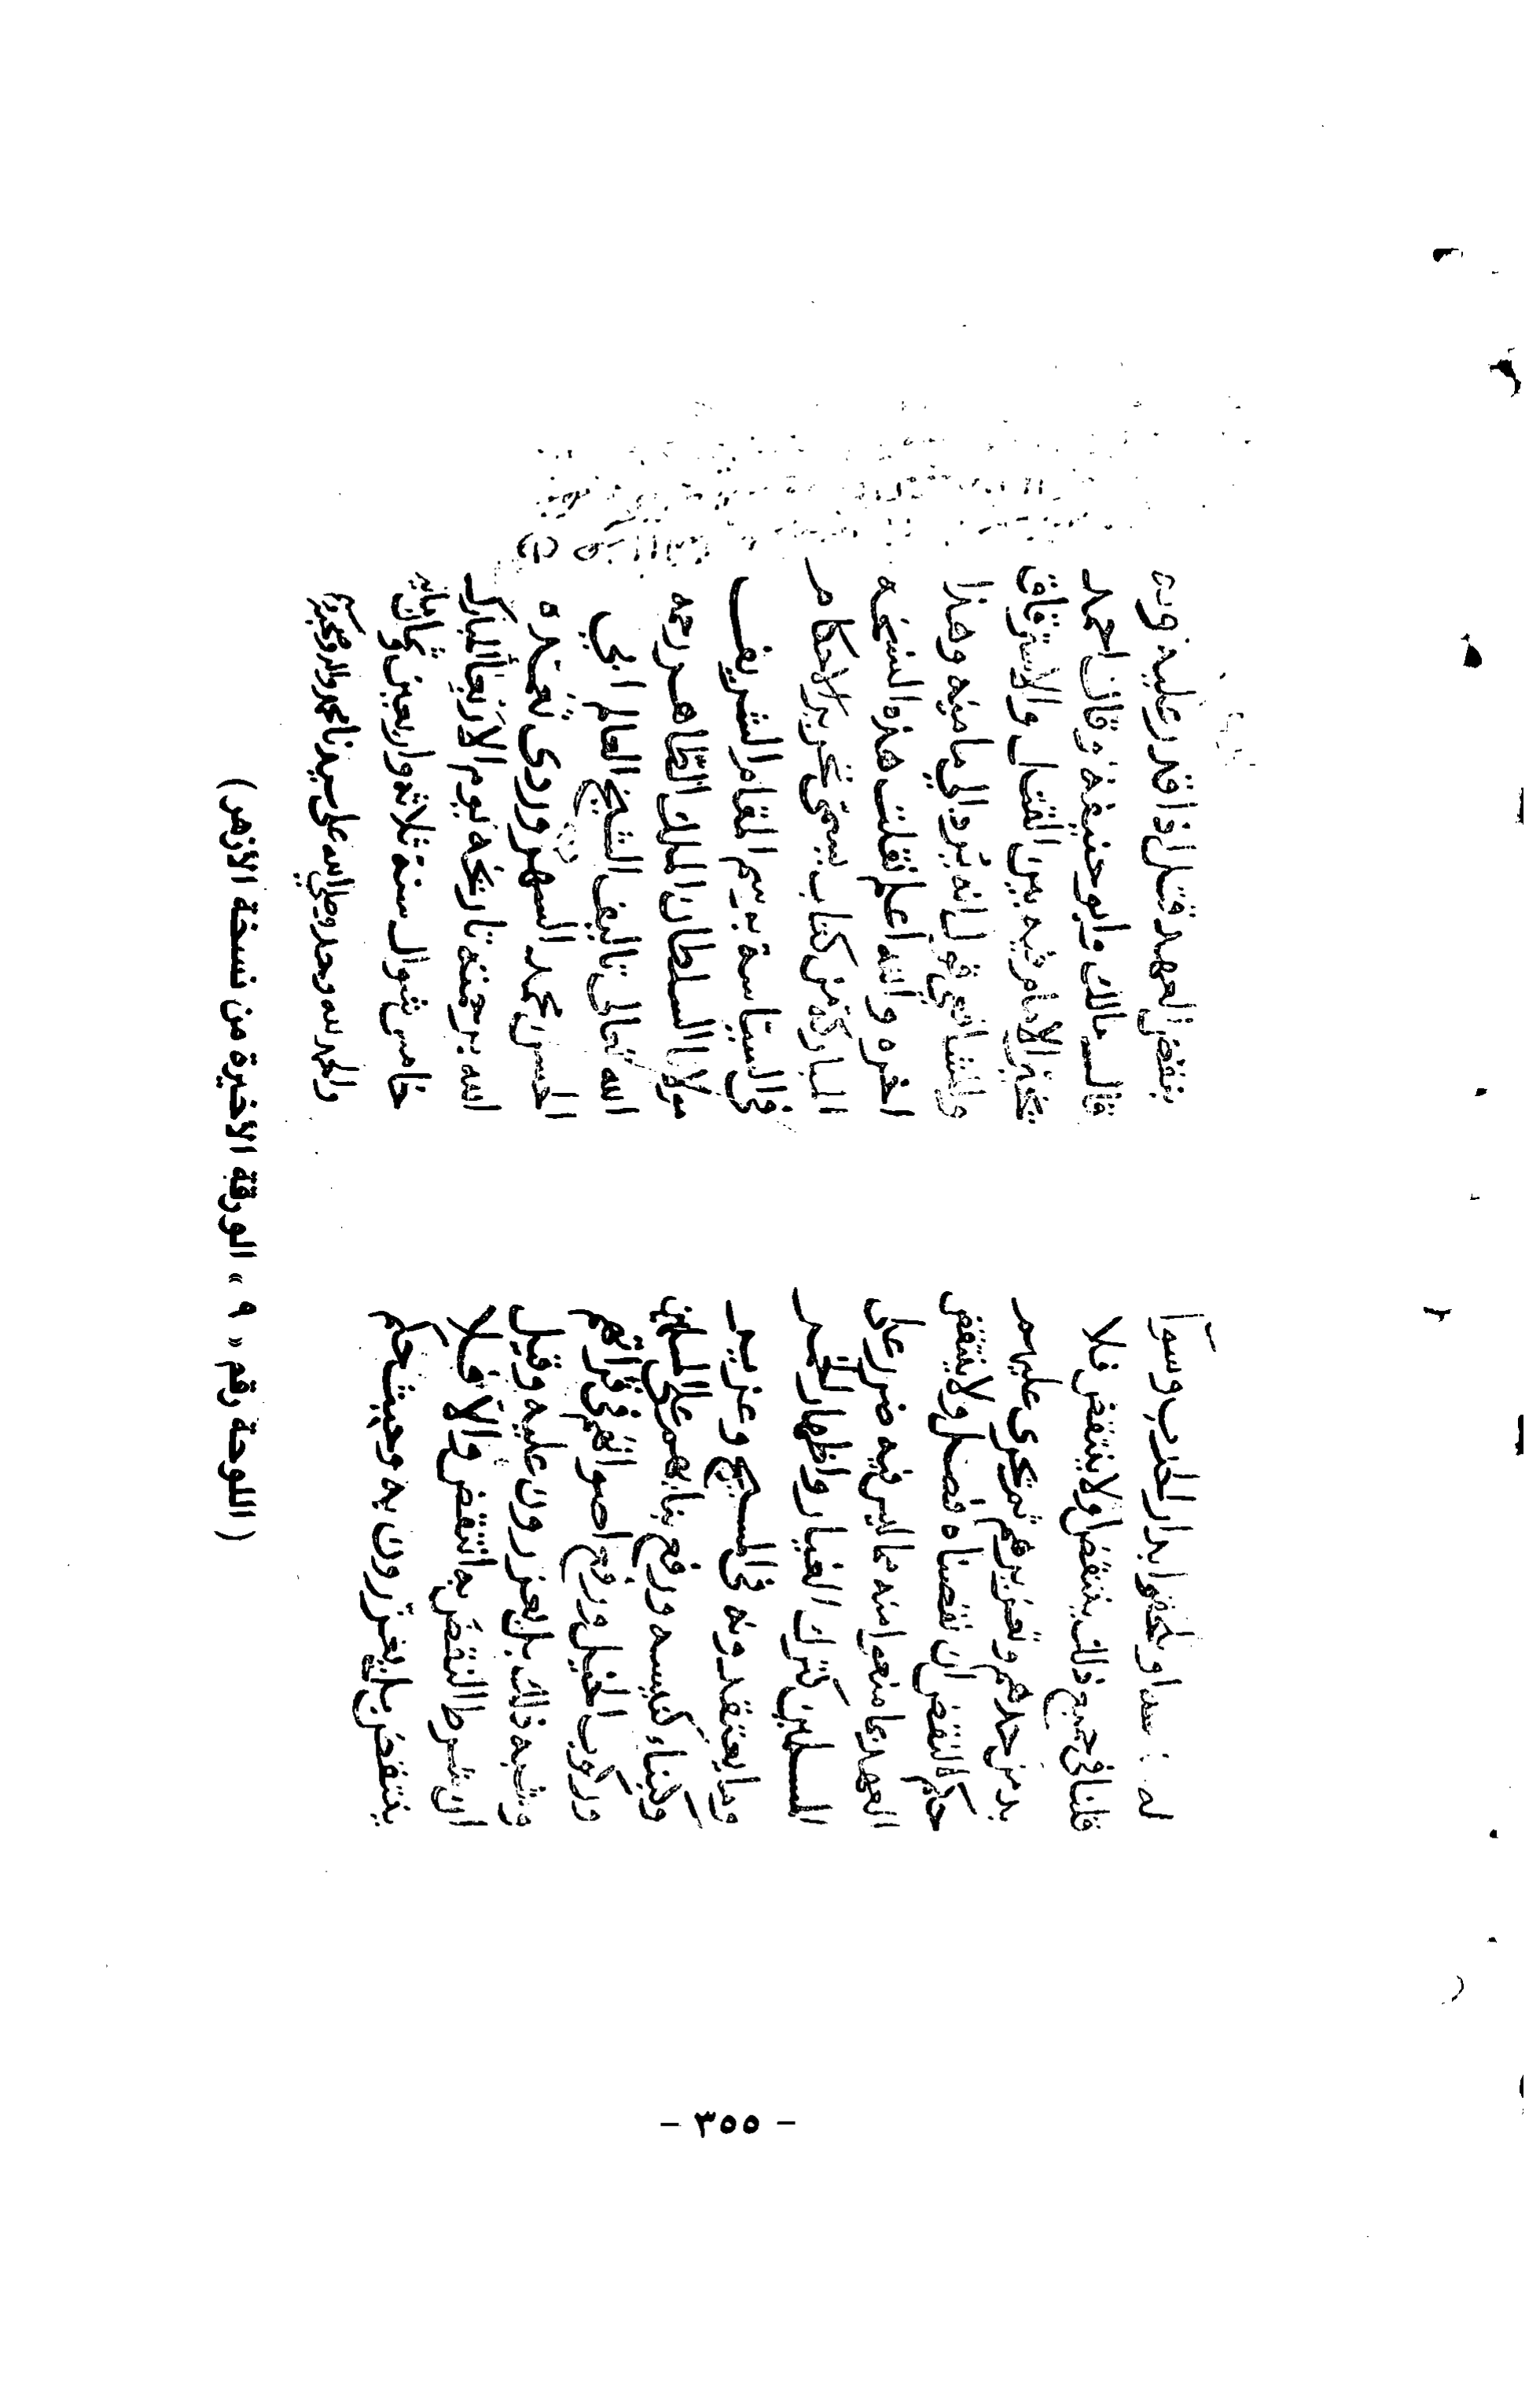 له او يلحقوا بدار الحرب وسوآ
قلنا في جميع ذلك ينتقض او لا ينتقض فلا
بد من حدهم وتعزيرهم ثم تجرى عليهم
حكم النقض ان نقضناه فصل ولا ينتقض
العهد بما منعوا منه مما ليس فيه ضرر على
المسلمين كترك الغيار واظهار الخمر
وما يعتقدونه في المسيح وعزير
وكبناء كنيسه ورفع بنايهم على المسلمين
وركوب الخيل ورفع اصواتهم في قراتهم
وشبه ذلك بل يعزرون عليه وقيل
ان شرط النقض به انتقض والا فلا
ينتقض بل يعزرون به وحيث حكم
بنقض العهد قتل اذا قدر عليه وبه
قال مالك وابو حنيفة وقال احمد
يخير الامام فيه بين القتل والاسترقاق
وللشافعي قول انه يرد الى مامنه وهذا
اخره والله اعلم نقلت هذه النسخه
المباركة من كتاب يسمى تحرير الاحكام
في السياسة برسم المقام الشريف
مولانا السلطان الملك الظاهر رحمه
الله تعالى تاليف الشيخ العالم ابي
الحسن محمد السهروردى تغمده
الله برحمته تاريخه يوم الاربعا المبارك
خامس شوال سنة ثلاثه واربعين وثمان مايه
والحمد لله وحده وصلى الله على سيدنا محمد واله وصحبه
( اللوحة رقم « ٩ » الورقة الأخيرة من نسخة الأزهر )
- ٣٥٥ -